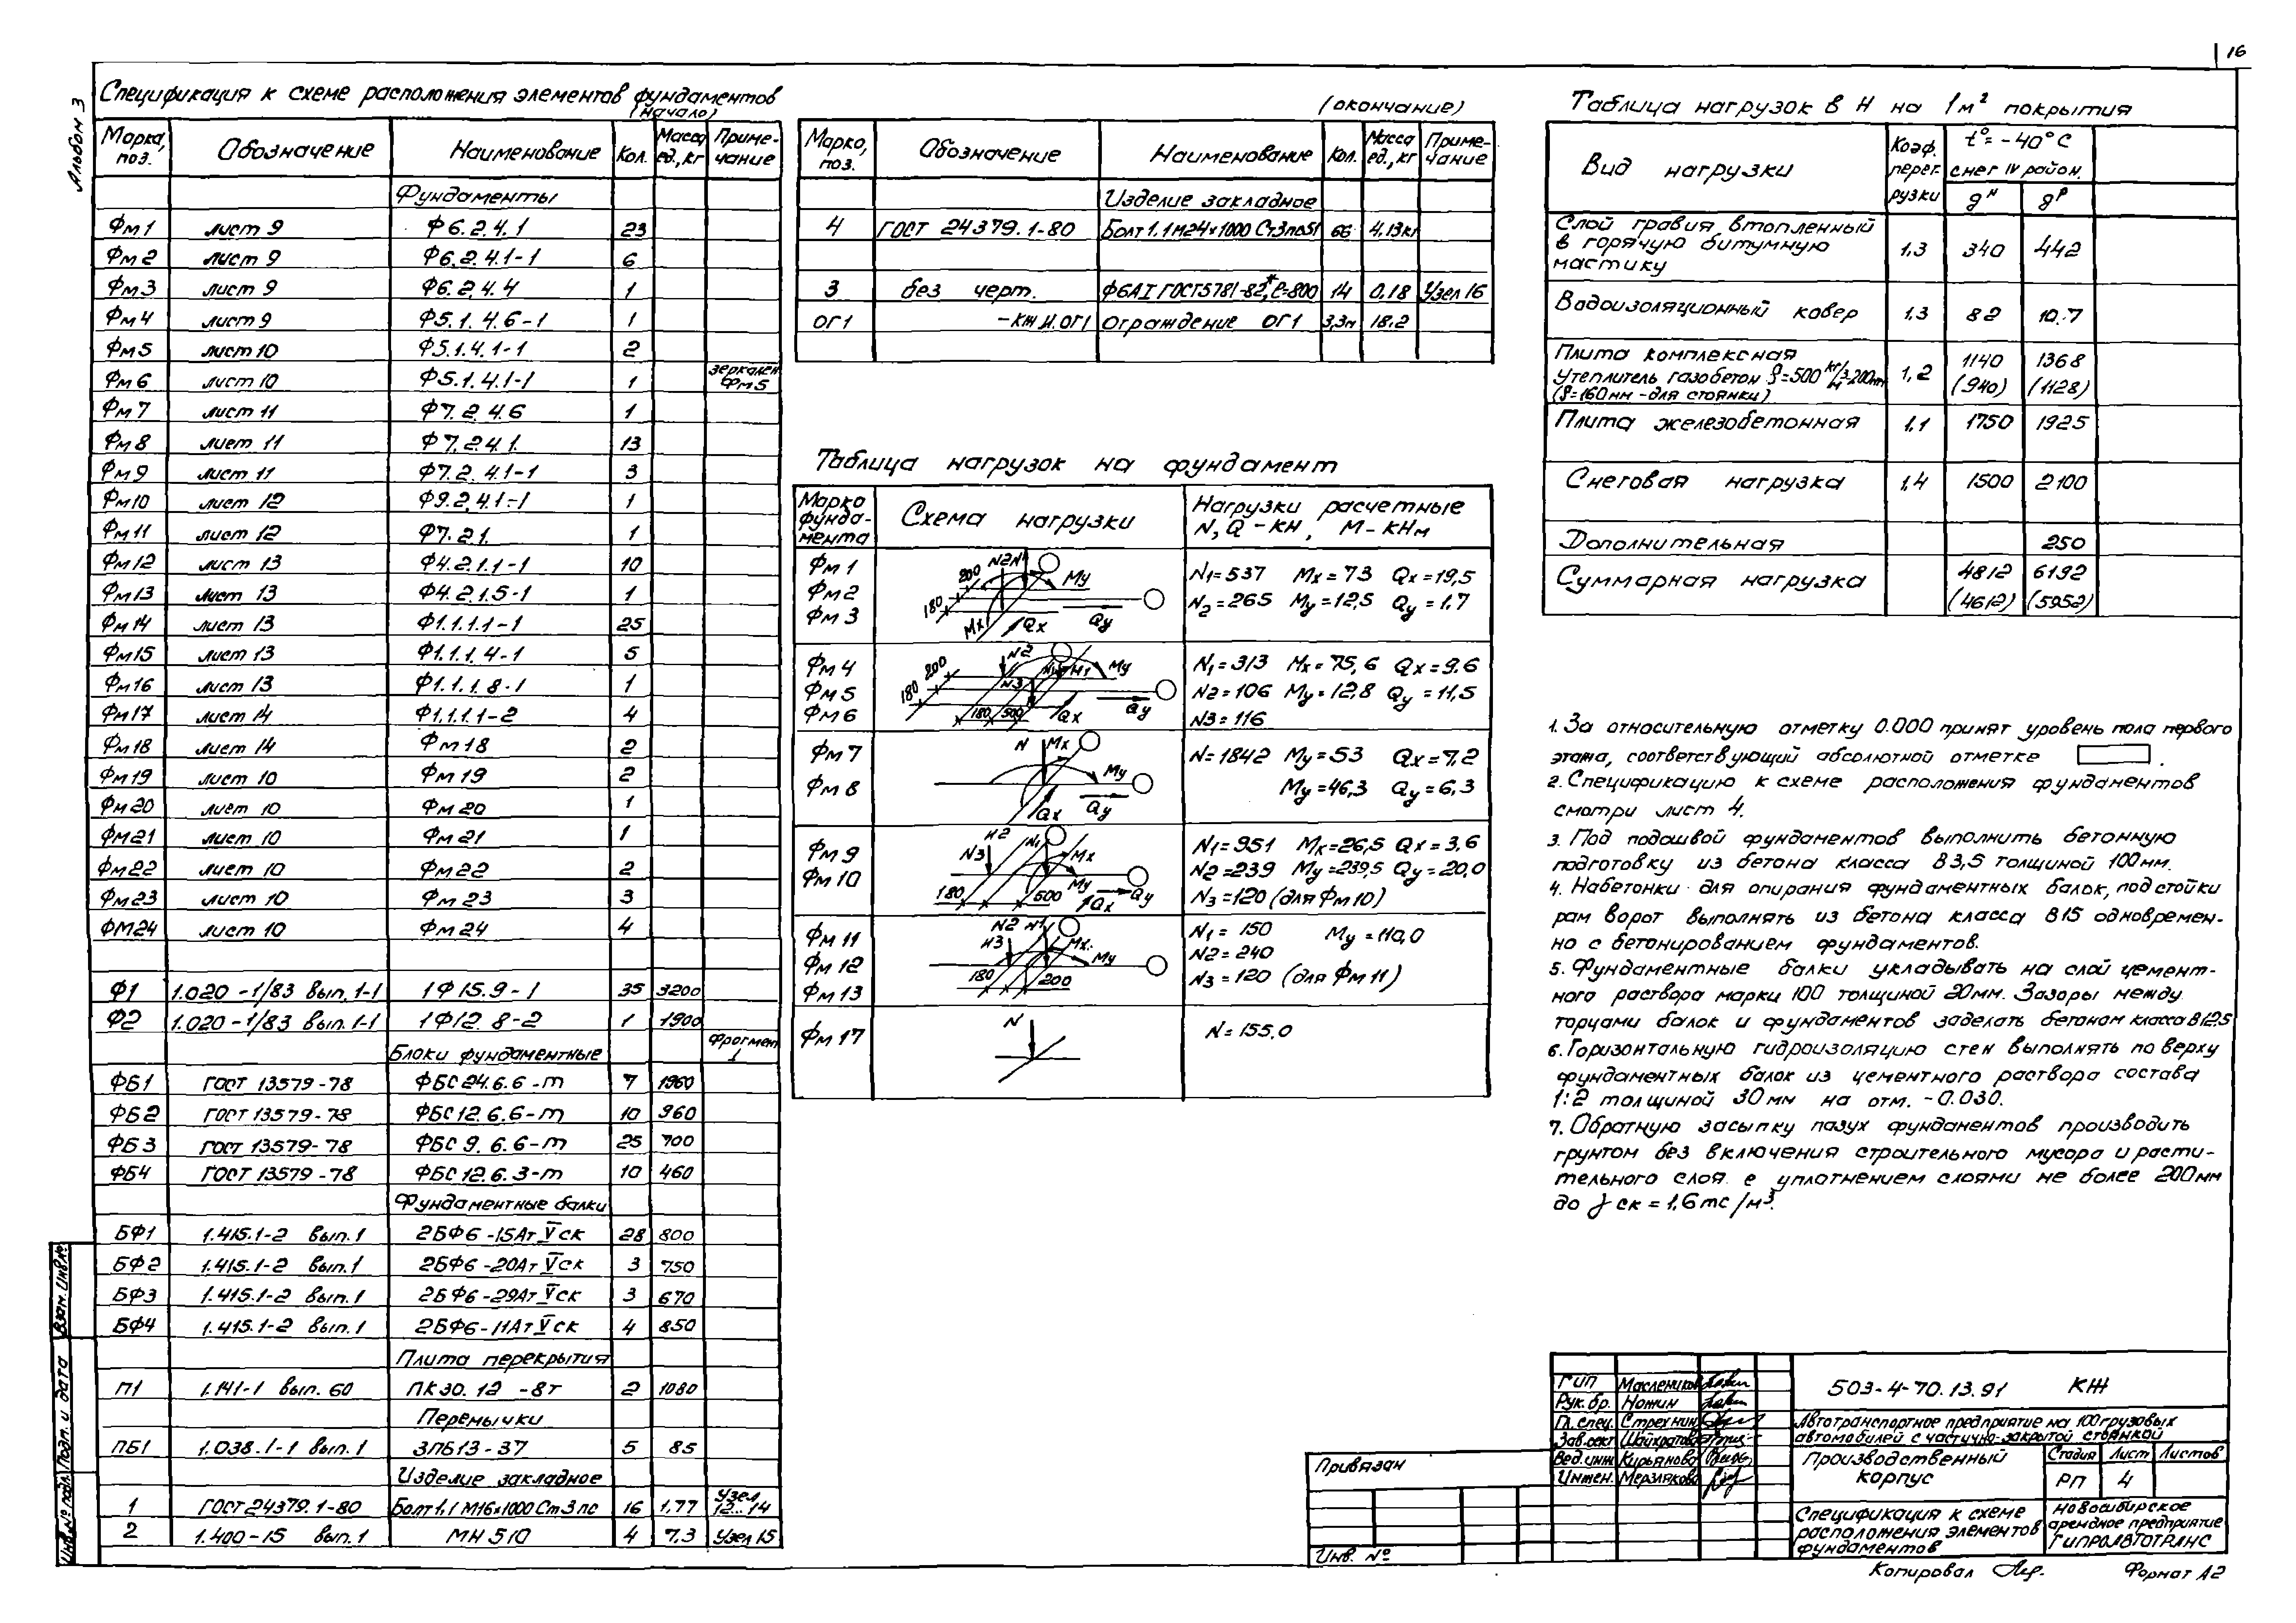 16
Альбом 3
Спецификация к схеме расположения элементов фундаментов
(начало)
Марка, поз. Обозначение Наименование Кол. Масса ед., кг Приме-чание
Фундаменты
Фм1 лист 9 Ф6.2.4.1 23
Фм2 лист 9 Ф6.2.4.1-1 6
Фм3 лист 9 Ф6.2.4.4 1
Фм4 лист 9 Ф5.1.4.6-1 1
Фм5 лист 10 Ф5.1.4.1-1 2
Фм6 лист 10 Ф5.1.4.1-1 1 зеркален Фм5
Фм7 лист 11 Ф7.2.4.6 1
Фм8 лист 11 Ф7.2.4.1. 13
Фм9 лист 11 Ф7.2.4.1-1 3
Фм10 лист 12 Ф9.2.4.1-1 1
Фм11 лист 12 Ф7.2.1. 1
Фм12 лист 13 Ф4.2.1.1-1 10
Фм13 лист 13 Ф4.2.1.5-1 1
Фм14 лист 13 Ф1.1.1.1-1 25
Фм15 лист 13 Ф1.1.1.4-1 5
Фм16 лист 13 Ф1.1.1.8-1 1
Фм17 лист 14 Ф1.1.1.1-2 4
Фм18 лист 14 Фм18 2
Фм19 лист 10 Фм19 2
Фм20 лист 10 Фм20 1
Фм21 лист 10 Фм21 1
Фм22 лист 10 Фм22 2
Фм23 лист 10 Фм23 3
Фм24 лист 10 Фм24 4
Ф1 1.020-1/83 вып. 1-1 1Ф15.9-1 35 3200
Ф2 1.020-1/83 вып. 1-1 1Ф12.8-2 1 1900
Блоки фундаментные Фрагмент 1
ФБ1 ГОСТ 13579-78 ФБС24.6.6-т 7 1960
ФБ2 ГОСТ 13579-78 ФБС12.6.6-т 10 960
ФБ3 ГОСТ 13579-78 ФБС9.6.6-т 25 700
ФБ4 ГОСТ 13579-78 ФБС12.6.3-т 10 460
Фундаментные балки
БФ1 1.415.1-2 вып.1 2БФ6-15Ат V ск 28 800
БФ2 1.415.1-2 вып.1 2БФ6-20Ат V ск 3 750
БФ3 1.415.1-2 вып.1 2БФ6-29Ат V ск 3 670
БФ4 1.415.1-2 вып.1 2БФ6-11Ат V ск 4 850
Плита перекрытия
П1 1.141-1 вып. 60 ПК30.12-8т 2 1080
Перемычки
ПБ1 1.038.1-1 вып.1 3ПБ13-37 5 85
Изделие закладное
1 ГОСТ 24379.1-80 Болт1.1 М16х1000 Ст3пс 16 1,77 Узел 12...14
2 1.400-15 вып.1 МН 510 4 7,3 Узел 15
(окончание)
Марка, поз. Обозначение Наименование Кол. Масса ед., кг Приме-чание
Изделие закладное
4 ГОСТ 24379.1-80 Болт1.1 М24х1000 66 4,13кг
3 без черт. Ф6АI ГОСТ5781-82* ℓ=800 14 0,18 Узел 16
ОГ1 -КЖ.И.ОГ1 Ограждение ОГ1 3,3м 18.2
Таблица нагрузок на фундамент
Марка фунда-мента Схема нагрузки Нагрузки расчетные N, Q - кН, М - кНм
Фм 1 N1=537 Мх=73 Qх=19,5
Фм 2 N2=265 Му=12,5 Qу=1,7
Фм 3
200 180 N2 N1 Му Мх Qх Qу
Фм 4 N1=313 Мх=75,6 Qх=9.6
Фм 5 N2=106 Му=12,8 Qу=11,5
Фм 6 N3=116
200 180 N2 N1 N3 Му 180 500 Qх Qу
Фм 7 N=1842 Му=53 Qх=7,2
Фм 8 Му=46,3 Qу=6,3
N Мх Му Qх Qу
Фм 9 N1=951 Мх=26,5 Qх=3,6
Фм 10 N2=239 Му=239,5 Qу=20,0
N3=120 (для Фм10)
N2 N1 N3 Мх Му 180 500 Qх Qу
Фм 11 N1= 150 Му=110,0
Фм 12 N2=240
Фм 13 N3=120 (для Фм 11)
N2 N1 N3 Мх Му 180 200
Фм 17 N N=155,0
Таблица нагрузок в Н на 1м² покрытия
Вид нагрузки Коэф. перег-рузки t°=-40°С
снег IV район.
gн gр
Слой гравия втопленный
в горячую битумную 1.3 340 442
мастику
Водоизоляционный ковер 1.3 82 107
Плита комплексная 1140 1368
Утеплитель газобетон ρ=500 кг/м³ 200мм 1,2 (940) (1128)
(ρ=160мм - для стоянки)
Плита железобетонная 1,1 1750 1925
Снеговая нагрузка 1,4 1500 2100
Дополнительная 250
Суммарная нагрузка 4812 6192
(4612) (5952)
1. За относительную отметку 0.000 принят уровень пола первого
этажа, соответствующий абсолютной отметке .
2. Спецификацию к схеме расположения фундаментов
смотри лист 4.
3. Под подошвой фундаментов выполнить бетонную
подготовку из бетона класса В3,5 толщиной 100мм.
4. Набетонки для опирания фундаментных балок, под стойки
рам ворот выполнять из бетона класса В15 одновремен-
но с бетонированием фундаментов.
5. Фундаментные балки укладывать на слой цемент-
ного раствора марки 100 толщиной 20мм. Зазоры между
торцами балок и фундаментов заделать бетоном класса В12,5
6. Горизонтальную гидроизоляцию стен выполнять по верху
фундаментных балок из цементного раствора состава
1:2 толщиной 30мм на отм. -0.030.
7. Обратную засыпку пазух фундаментов производить
грунтом без включения строительного мусора и расти-
тельного слоя с уплотнением слоями не более 200мм
до γ ск = 1,6тс/м³.
Инв. № подл. Подп. и дата Взам. инв. №
Привязан
Инв. №
ГИП Маслеников
Рук. бр. Ножин
Гл. спец. Стрехнин
Зав. сект Шайхратова
Вед. инж Кирьянова
Инжен. Мерзлякова
503-4-70.13.91 КЖ
Автотранспортное предприятие на 100 грузовых
автомобилей с частично-закрытой стоянкой
Производственный корпус
Стадия Лист Листов
РП 4
Спецификация к схеме
расположения элементов
фундаментов
Новосибирское
арендное предприятие
ГИПРОАВТОТРАНС
Копировал Формат А2